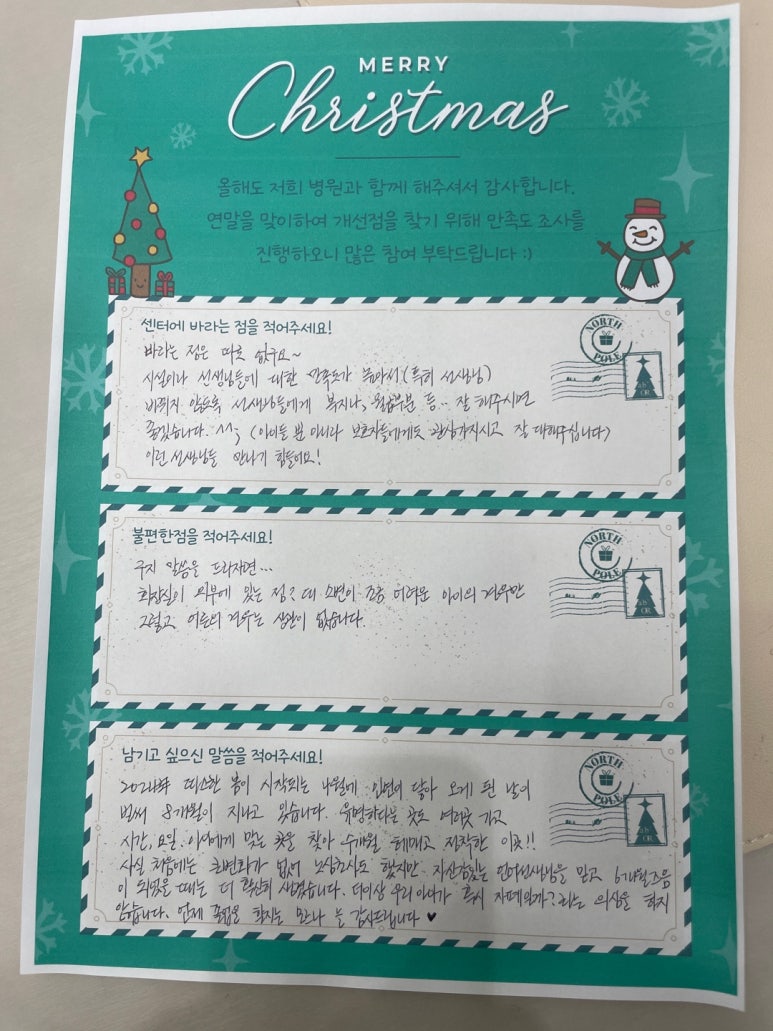 MERRY
Christmas
올해도 저희 병원과 함께 해주셔서 감사합니다.
연말을 맞이하여 개선점을 찾기 위해 만족도 조사를
진행하오니 많은 참여 부탁드립니다 :)
센터에 바라는 점을 적어주세요!
NORTH
POLE
바라는 점은 따로 없구요~
시설이나 선생님들에 대한 만족도가 높아서(특히 선생님)
바뀌지 않도록 선생님들에게 복지나, 월급부분 등.. 잘 해주시면
좋겠습니다. ^^; (아이들 뿐 아니라 보호자들에게도 관심가지시고 잘 대해주십니다)
이런 선생님들 만나기 힘들어요!
불편한점을 적어주세요!
NORTH
POLE
구지 말씀을 드리자면...
화장실이 외부에 있는 점? 대소변이 조금 어려운 아이의 경우만
그렇고 여느의 경우는 상관이 없습니다.
남기고 싶으신 말씀을 적어주세요!
NORTH
POLE
2024년 따스한 봄이 시작되는 4월에 인연이 닿아 오게 된 날이
벌써 8개월이 지나고 있습니다. 유명하다는 곳도 여러곳 가고
시간, 요일, 아이에게 맞는 곳을 찾아 수개월 헤매고 정착한 이곳!!
사실 처음에는 큰변화가 없어 노심초사도 했지만 자신감있는 언어선생님을 믿고 6개월즈음
이 되었을 때는 더 확신이 생겼습니다. 더이상 우리 아이가 혹시 자폐인가? 라는 의심을 하지
않습니다. 언제 졸업을 할지는 모르나 늘 감사드립니다 ♥